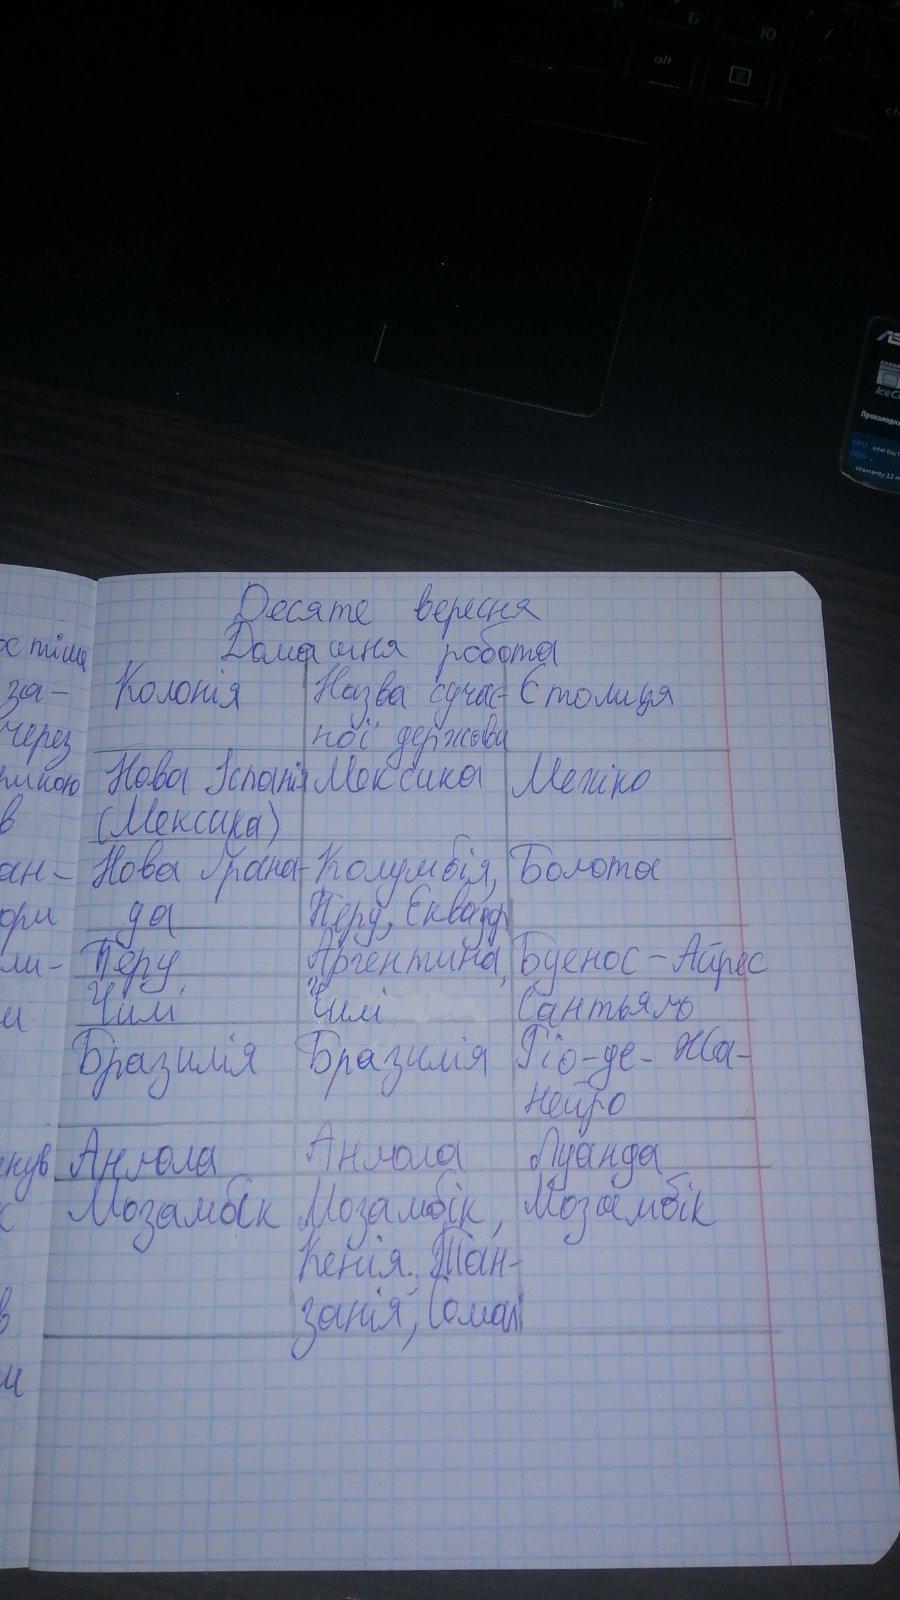 Десяте вересня
Домашня робота
Колонія Назва сучас- Столиця
ної держави
Нова Іспанія Мексика Мехіко
(Мексика)
Нова Грана- Колумбія, Богота
да Перу, Еквадор
Перу, Аргентина, Буенос-Айрес
Чилі Чилі Сантьяго
Бразилія Бразилія Ріо-де-Жа-
нейро
Ангола Ангола Луанда
Мозамбік Мозамбік, Мозамбік
Кенія, Тан-
занія, Сомалі
за-
через
в
ан-
ори
ли-
и
в
alt
Б
Б
Ю
Warranty 12